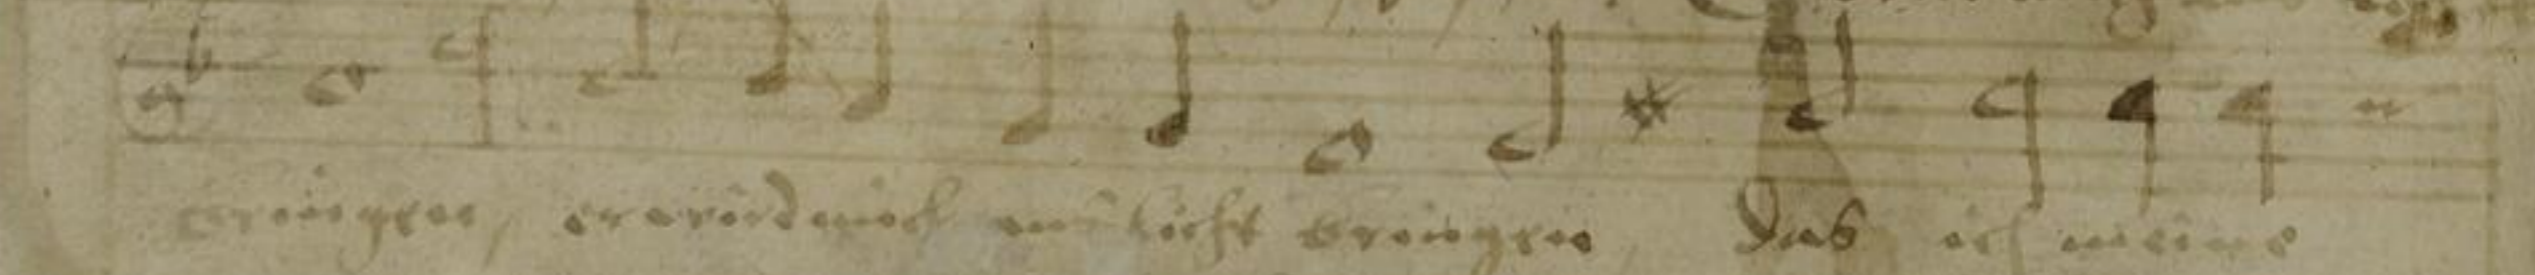 bringen, er würd mich ans licht bringen, das ich meine